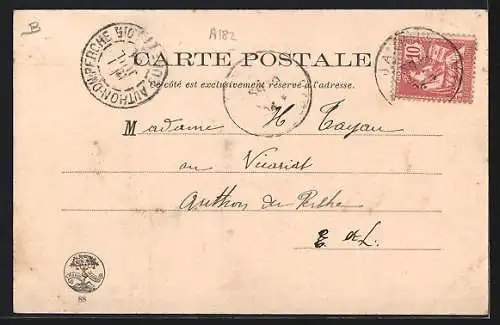 B
A182
AUTHON-DU-PERCHE
CARTE POSTALE
Ce côté est exclusivement réservé à l'adresse.
10
Madame H Tayau
au Vicariat
Authon du Perche
E & L.
88